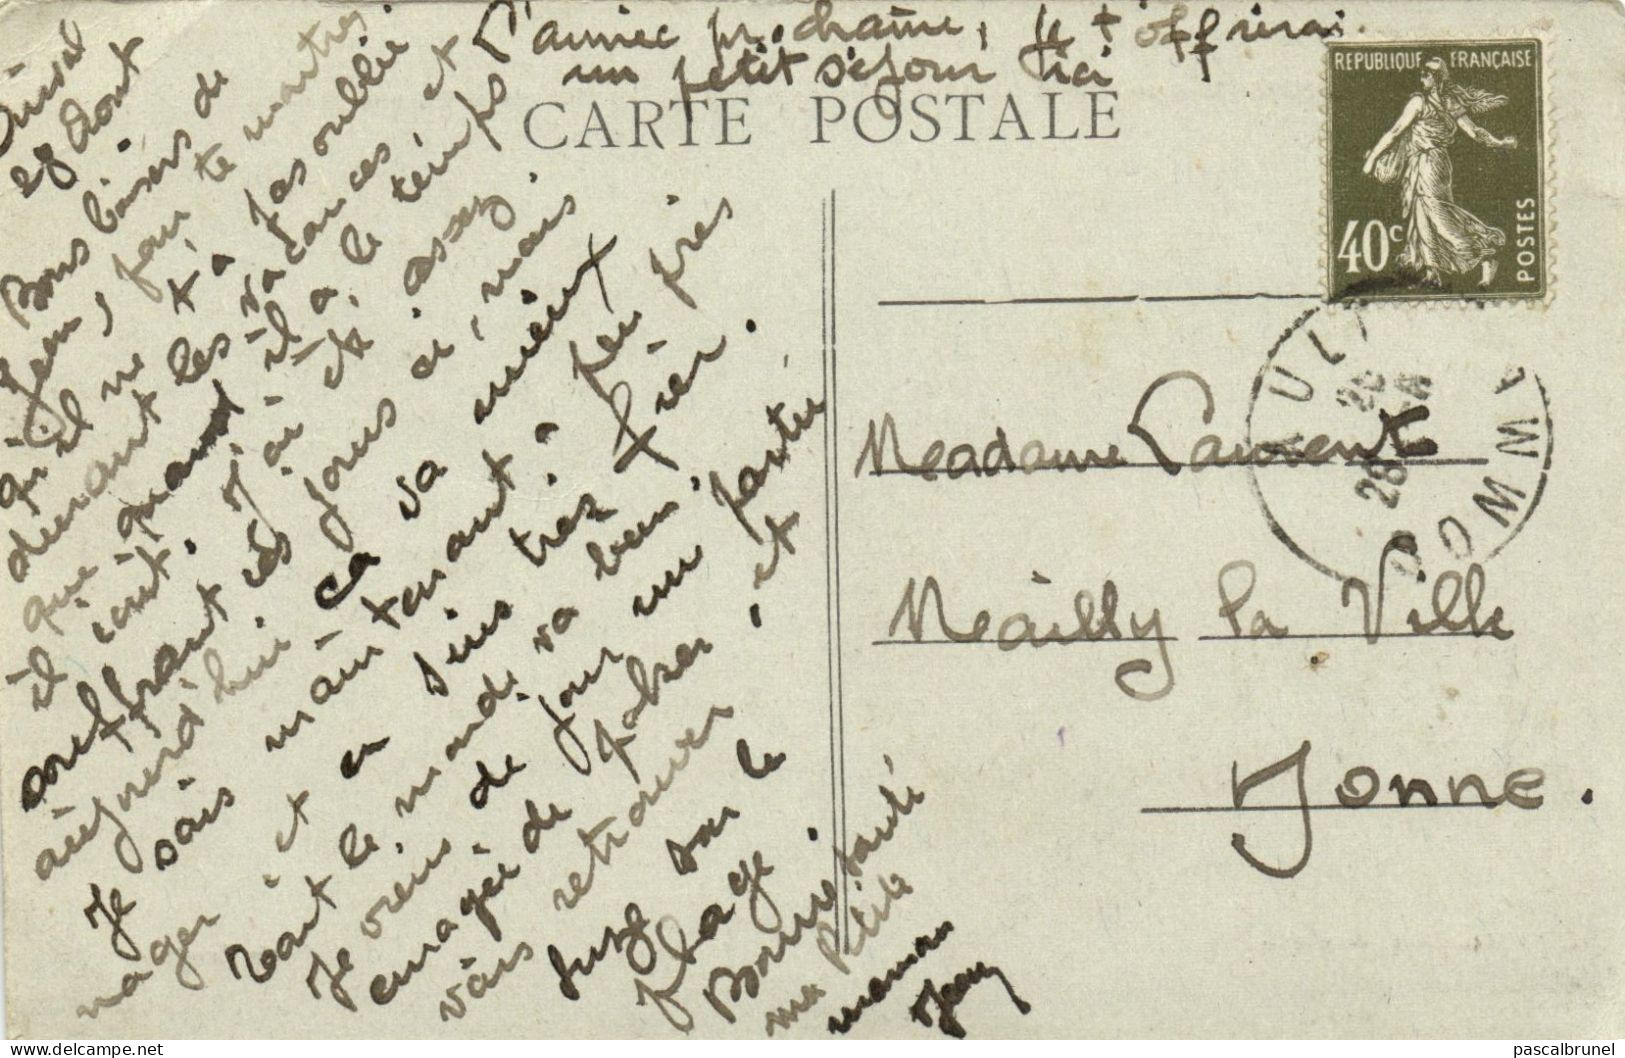 L'année prochaine, je t'offrirai
un petit séjour ici
CARTE POSTALE
REPUBLIQUE FRANÇAISE
40c
POSTES
AULT
SOMME
28
28 Août
Bons baisers de
Jean, pour te montrer
qu'il ne t'a pas oublié
durant les vacances et
que quand il a le temps
il écrit. J'ai été assez
souffrant ces jours ci, mais
aujourd'hui ça va mieux
Je sais maintenant à peu près
nager et en suis très fier.
Tout le monde va bien.
Je viens de jouer une partie
enragée de et
vais retrouver
sur la
plage.
Bonne santé
ma petite
maman
Jean
Madame Laurent
Mailly la Ville
Yonne.
pascalbrunel
delcampe.net